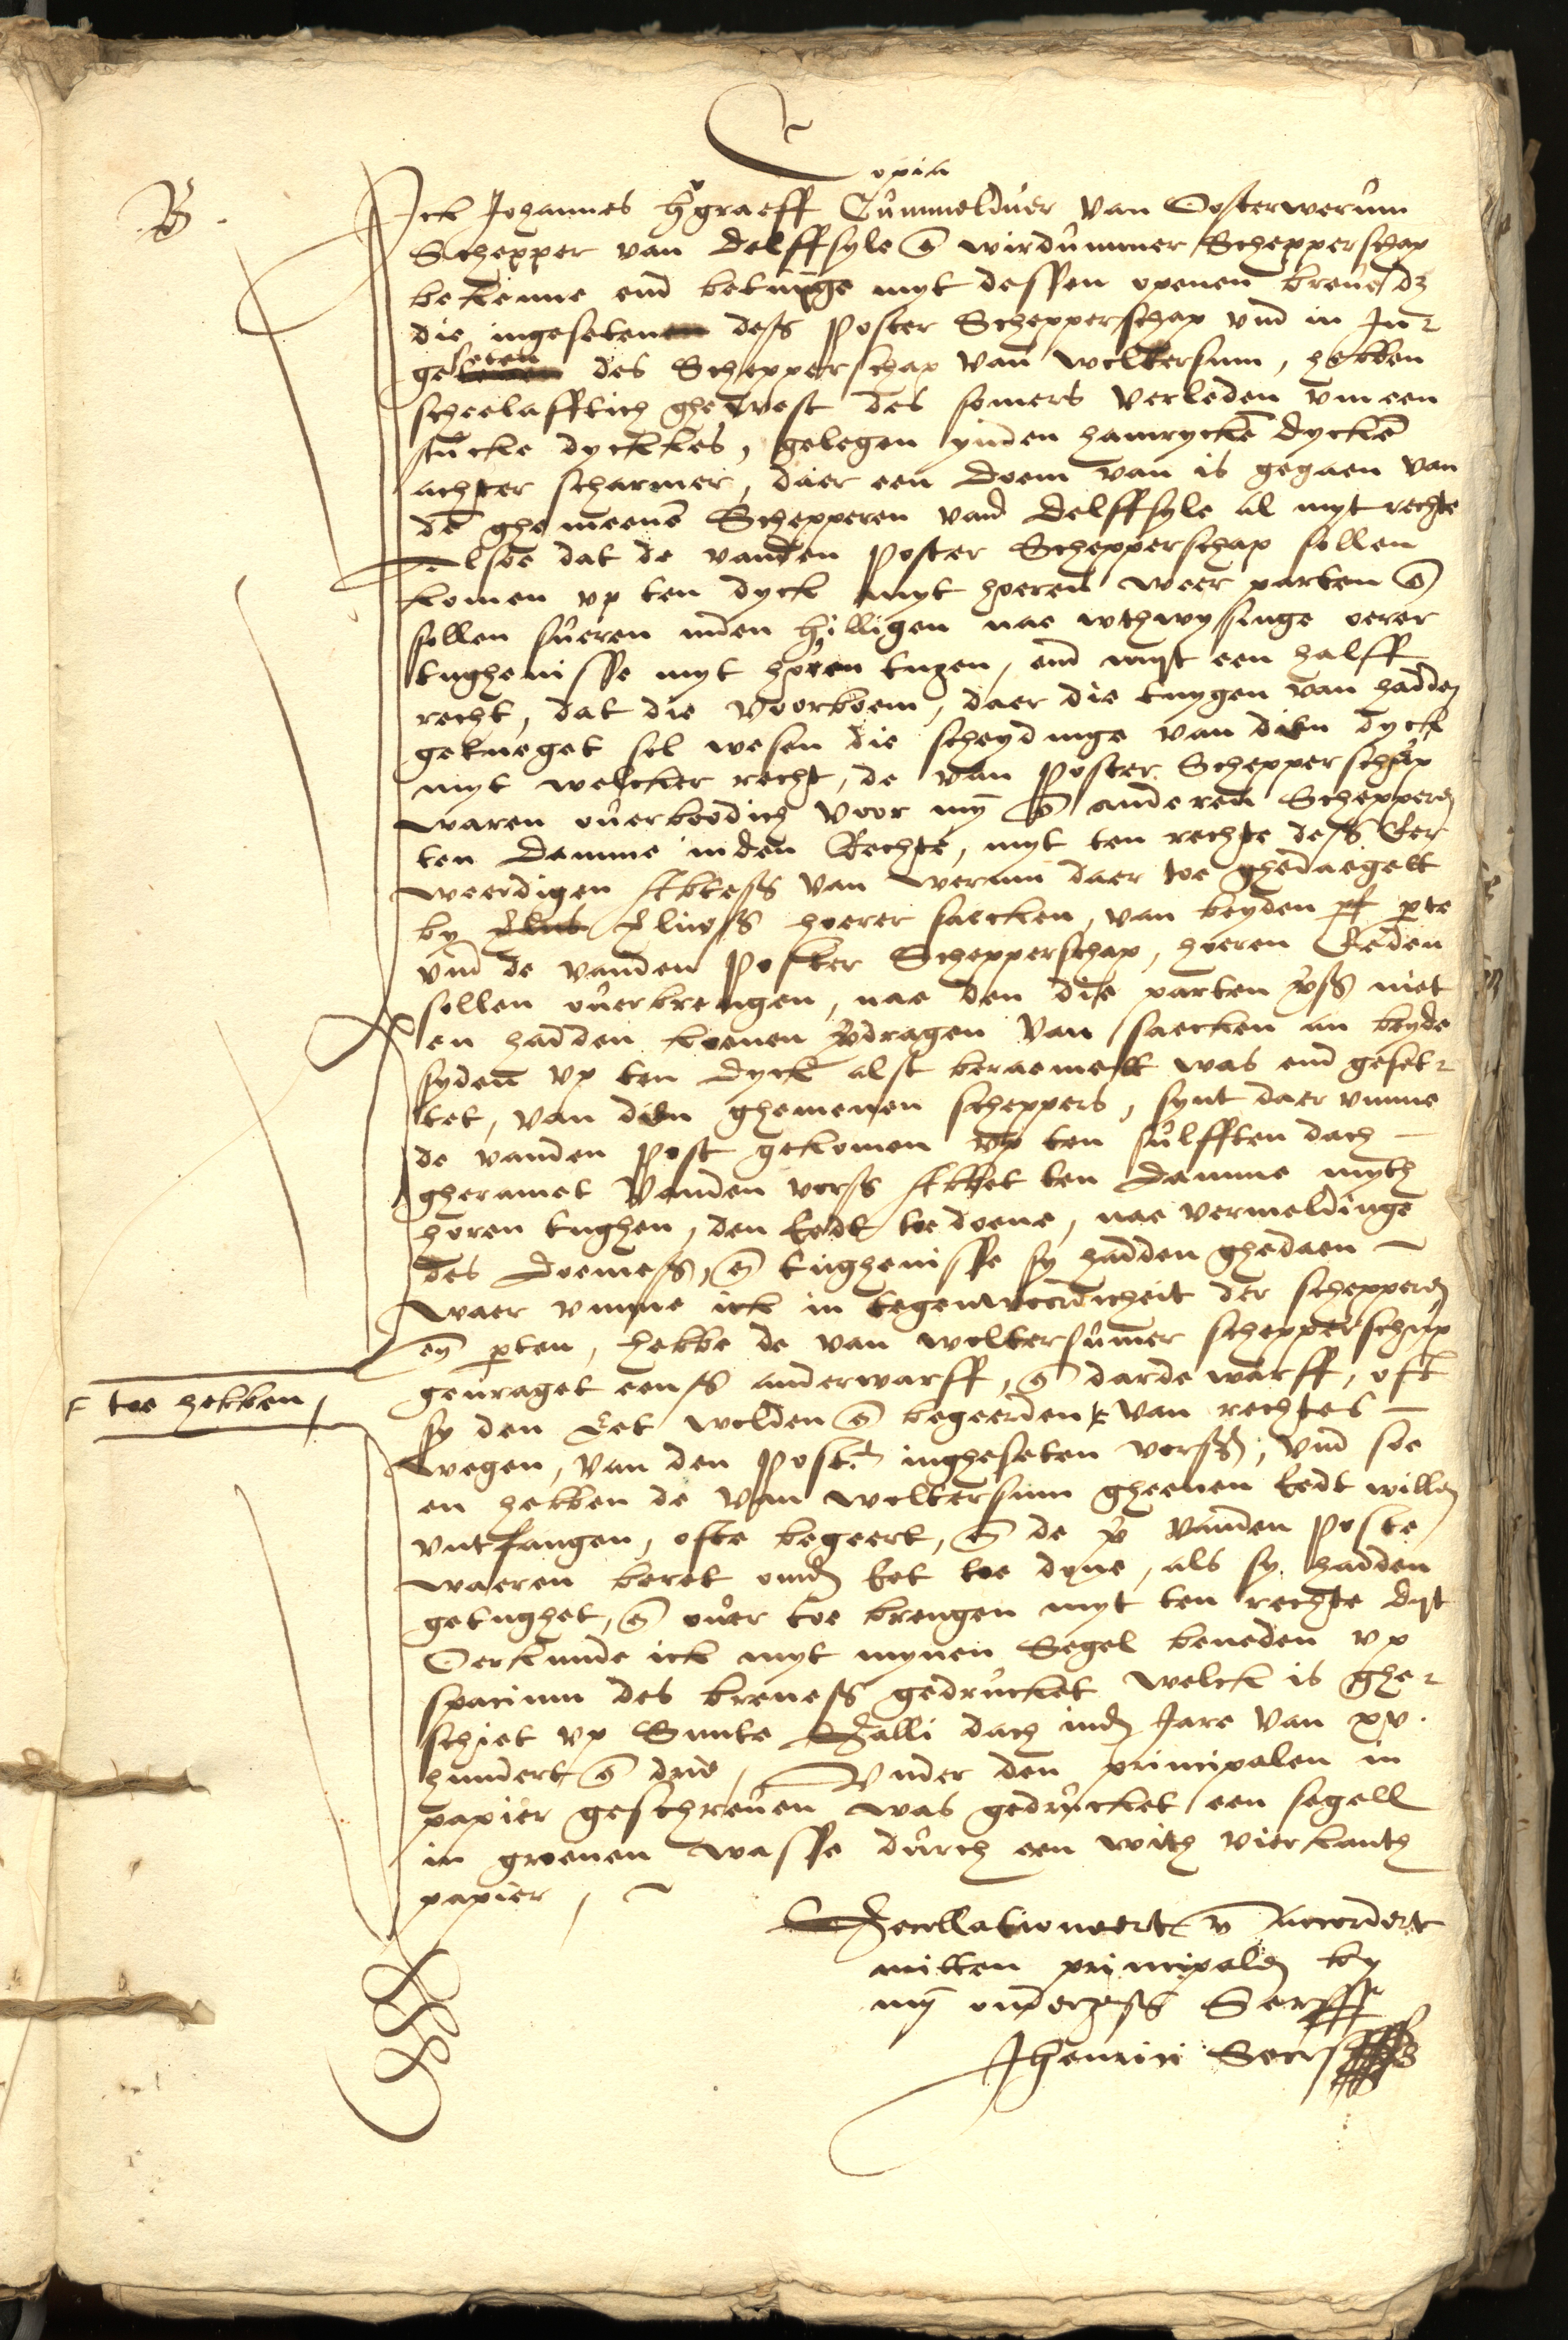 Copia
B.
Ick Johannes h graeff Cummelduer van Oosterwerum
Schepper van Delffsyle en wirdummer Schepperschap
bekenne end betuige myt dessen openen breue dz
die ingeseten dess Poster Schepperschap vnd in Jn
geseten des Schepperschap van woltersum, hebben
scheelafftich ghewest des somers verleden vm een
stucke dyckkes, gelegen ynden hamrycke dycke
achter scharmer, daer een doem van is gegaen van
de ghemeene Schepperen vand Delffsyle al myt rechte
Alsoe dat de vanden Poster Schepperschap sollen
komen vp ten dyck myt hoeren weer parten en
sollen sueren inden hilligen nae wthwysinge oerer
tughenisse myt horen tugen, end myt een halff
recht, dat die voorboem, daer die tuygen van hadden
getueget sel wesen die scheydinge van dien dyck
myt welcker recht, de van Poster Schepperschap
waren ouerboodich voor my en anderen Schepperen
ten Damme inden Rechte, myt ten rechte dess Eer
weerdigen Abtess van werum daer toe ghedaegett
by hoerer saecken, van beyden pte
vnd de vanden Poster Schepperschap, hoeren Eeden
sollen ouerbrengen, nae den die parten vss niet
en hadden koenen vdragen van saecken an beyde
syden vp ten dyck alst beraemett was end geset
tet, van dien ghemenen scheppers, synt daer vmme
de vanden Post gekomen vp ten sulfften dach
gheramet vanden vorss Abbet ten Damme myth
horen tughen, den eedt toe doene, nae vermeldinge
des doemess, en tughenisse sy hadden ghedaen
waer vmme ick in tegenwoordicheit der schepperen
en pten, hebbe de van woltersumer schepperschap
geuraget eenss anderwarff, en dardewarff, oft
toe hebben,
sy den Eet wolden en begeerden van rechtes
wegen, van den Post. ingheseten vorss, vnd soe
en hebben de van woltersum gheenen eedt willen
vntfangen, ofte begeert, en de vanden Poste
waeren beret eet toe dyne, als sy hadden
getughet, en ouer toe brengen myt ten rechte dyt
Oerkunde ick myt mynen Segel beneden vp
spacium des breuess gedrucket welck is ghe
schiet vp Sunte Galli dach inden Jare van xv.
hundert en drie, Vnder den principalen in
papier geschreuen was gedrucket een segell
in groenen wasse durch een with vierkanth
papier,
Gecollationeert en Accordert
mitten principalen by
my
Jhenrici